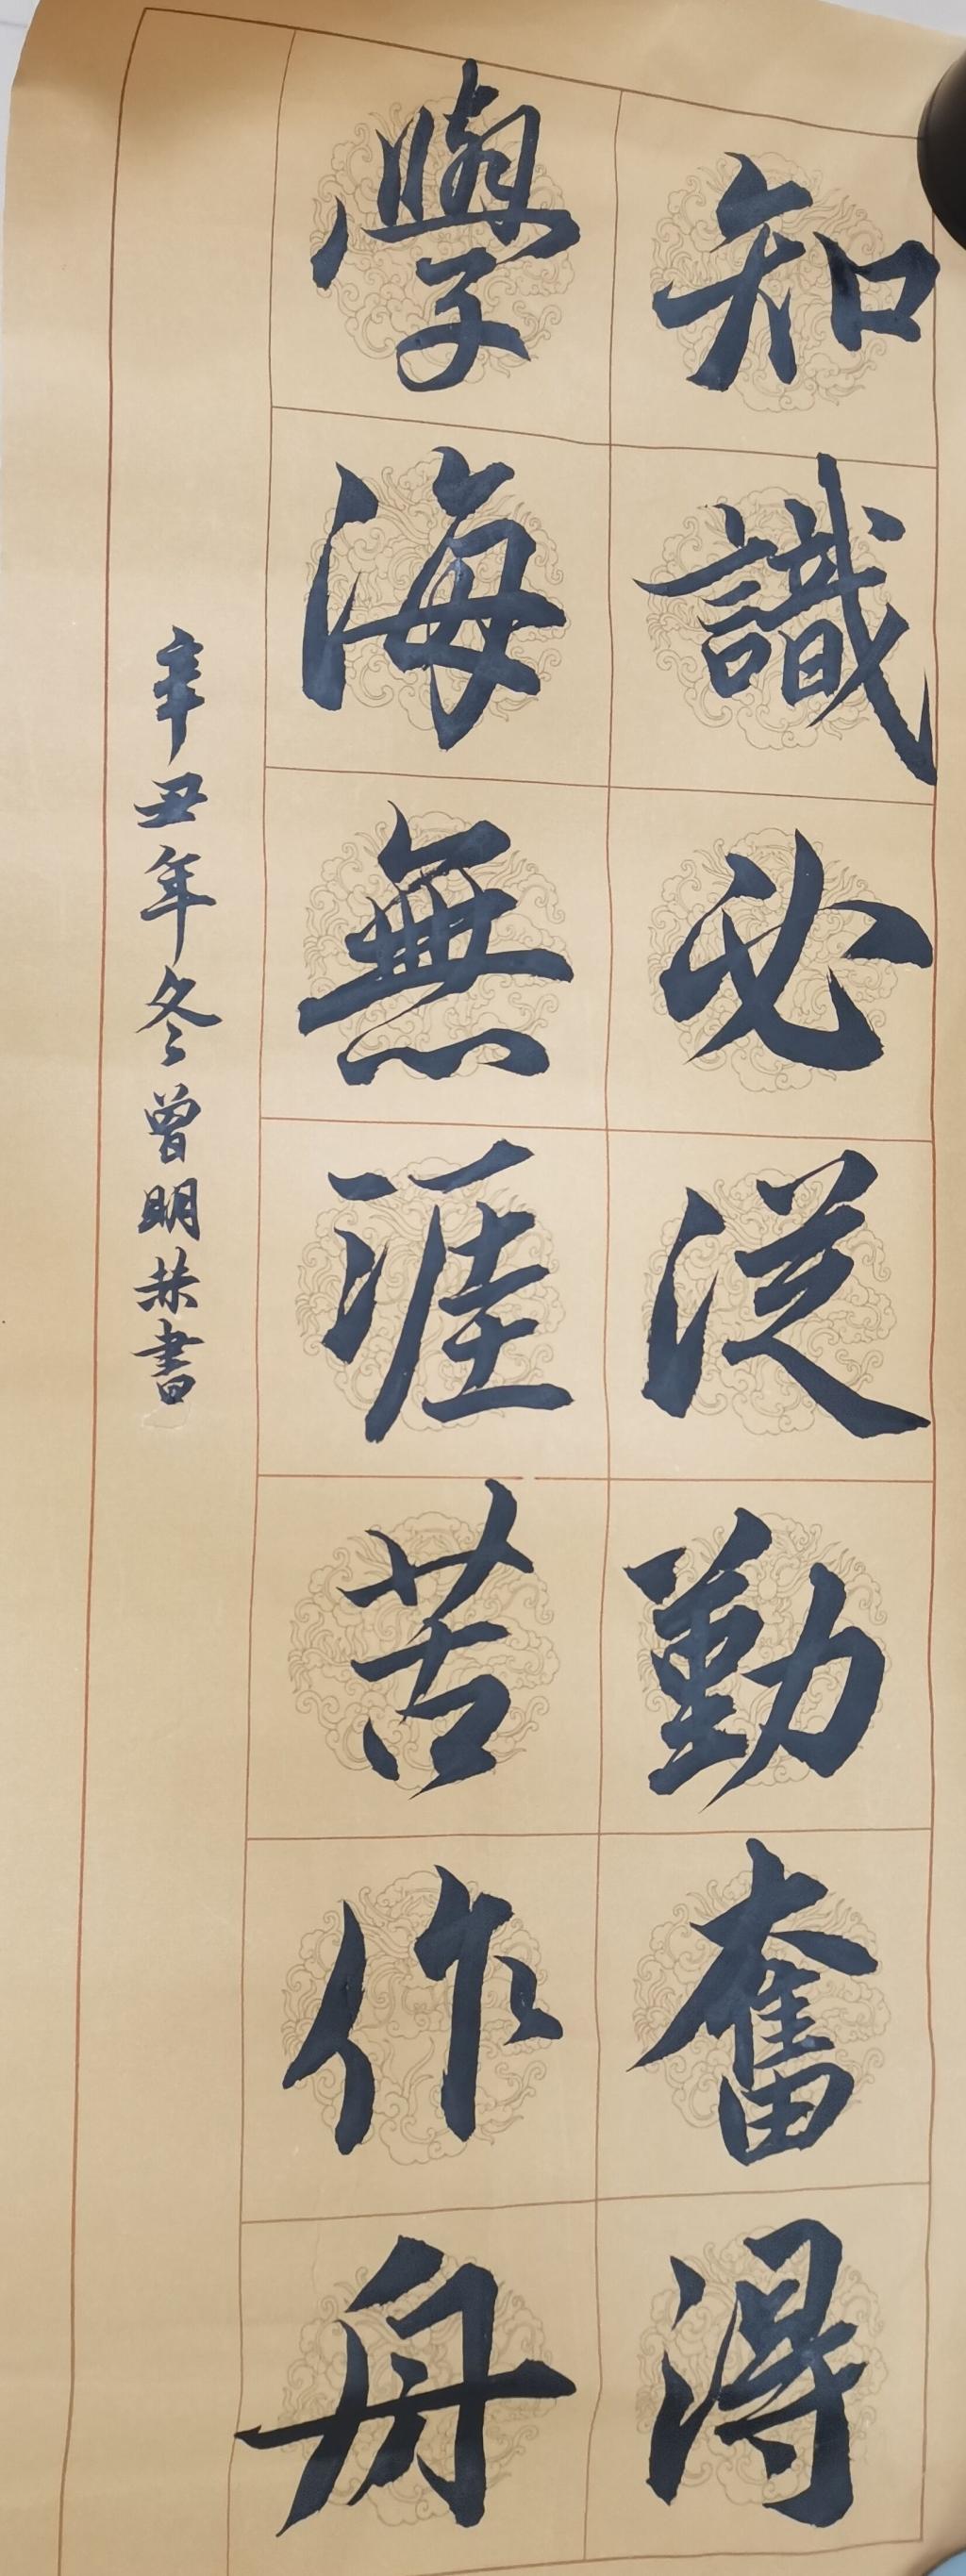 知識必從勤奮得
學海無涯苦作舟
辛丑年冬曾明恭書